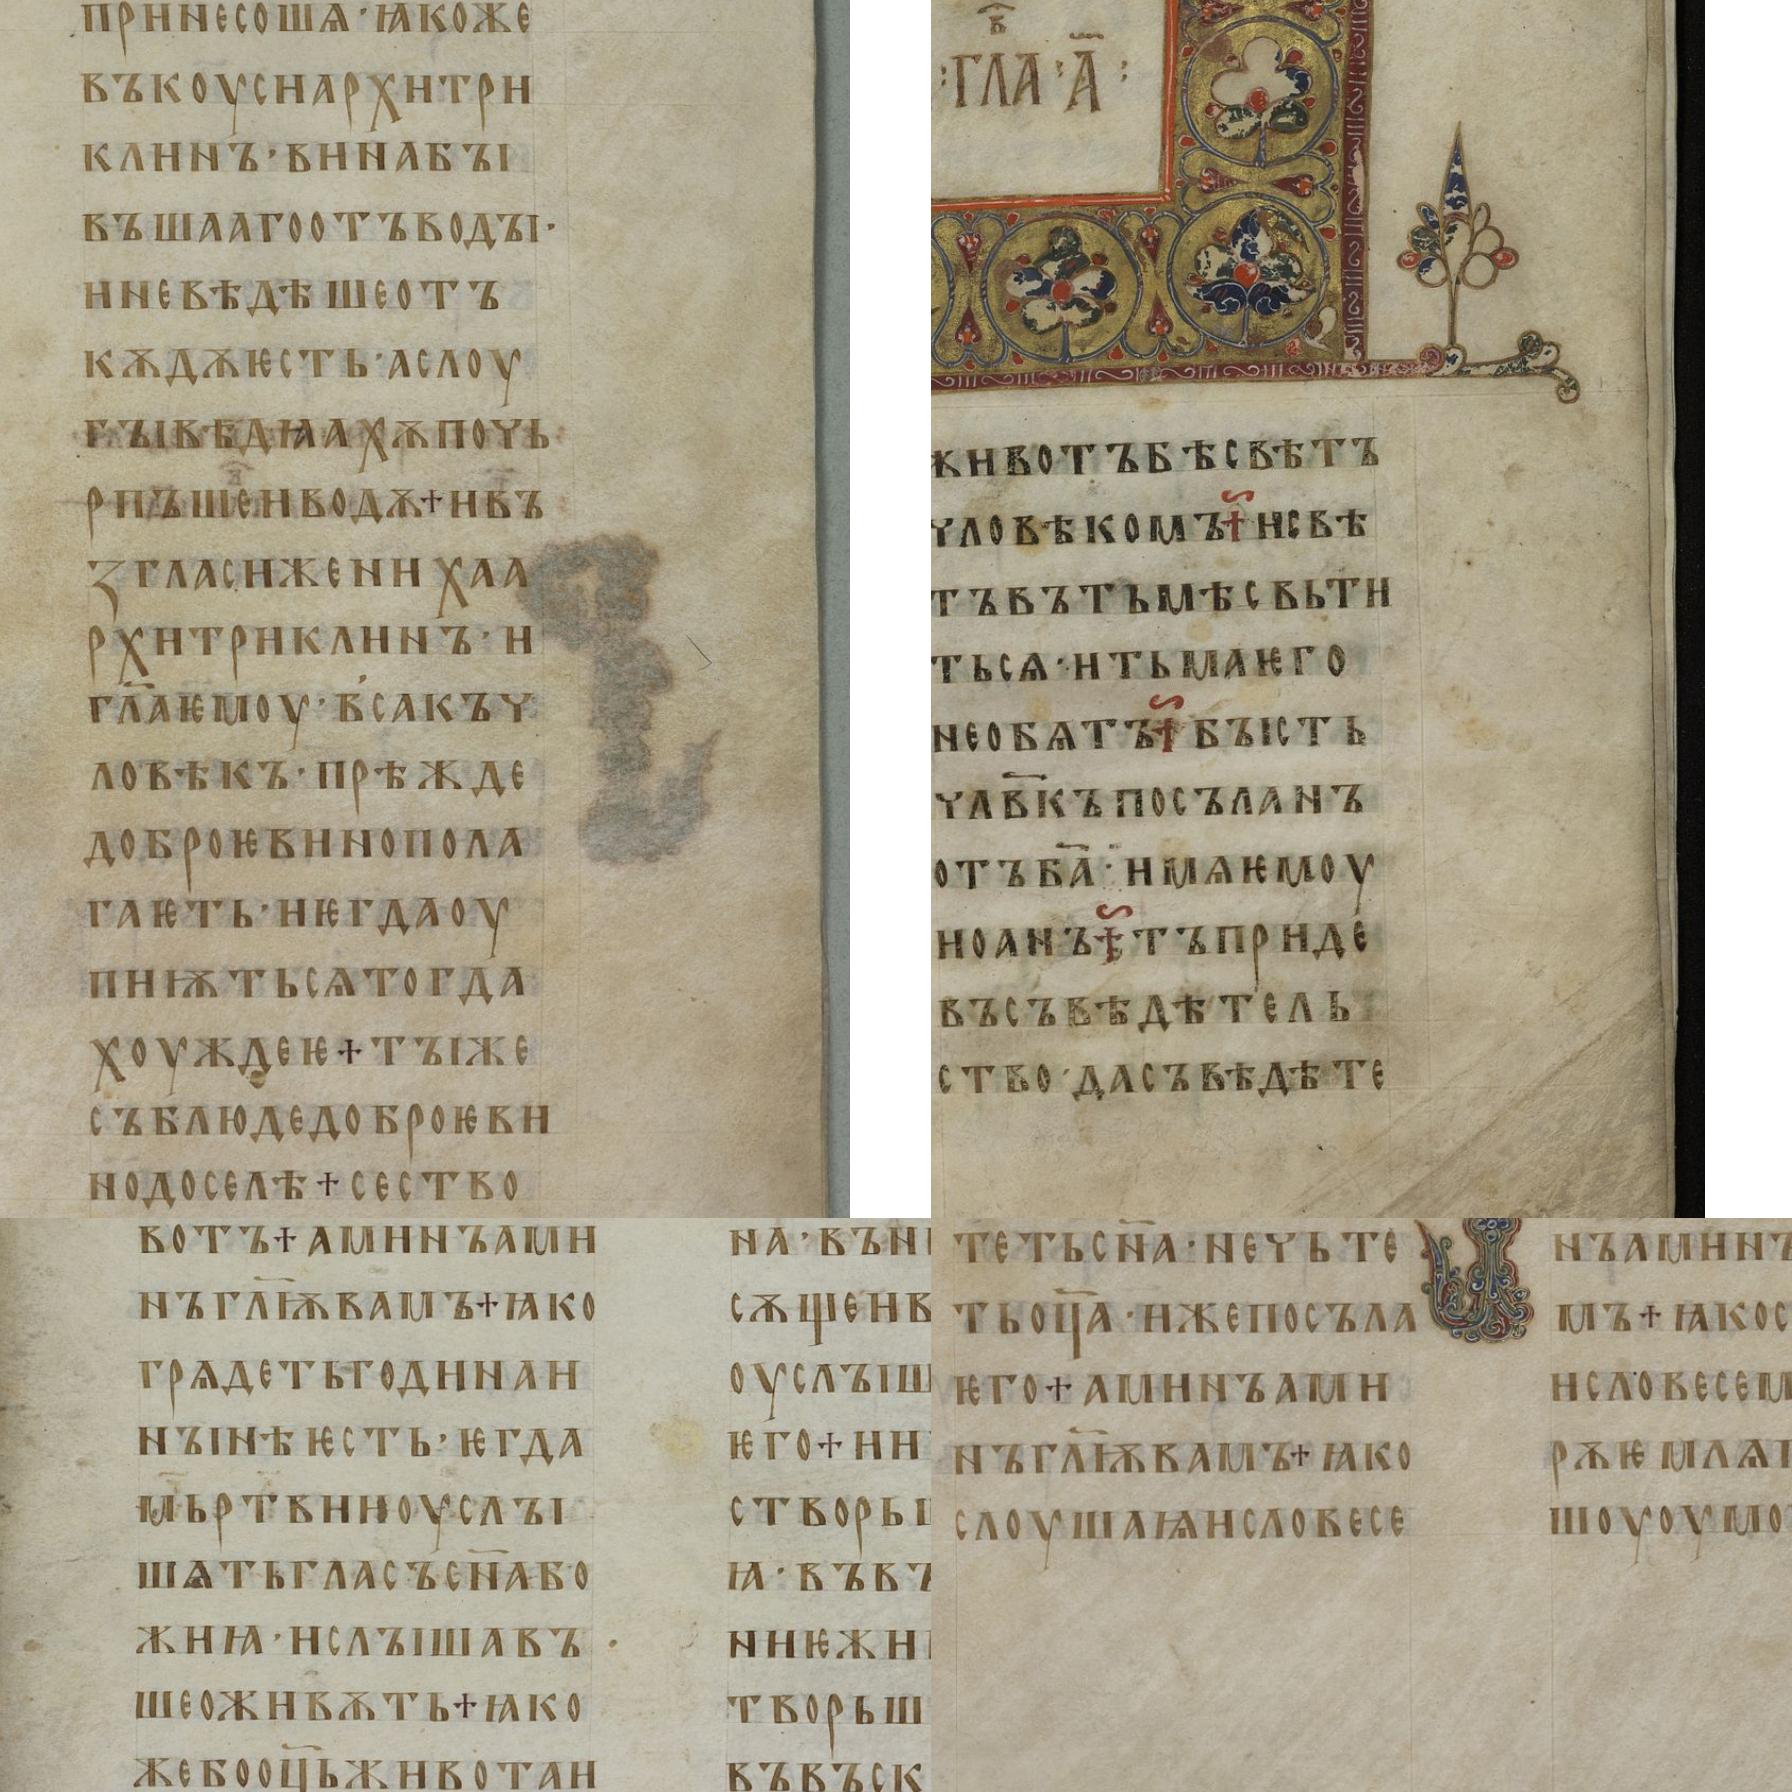 принесошѧ · ꙗкоже
въкоуснархитри
клинъ · виннабꙑ
въшааго отъ водꙑ ·
и не вѣдѣше отъ
кѫдѫ ѥсть · а слоу
гꙑ вѣдѣахѫ почь
рпъшеи водѫ + И въ
згласи жениха а
рхитриклинъ · и
гл҃а ѥмоу · в҆сакъ ч
ловѣкъ · прѣжде
доброѥ вино пола
гаѥть · и ѥгда оу
пиѭтьсѧ тогда
хоуждеѥ + тꙑ же
съблюде доброѥ ви
но доселѣ + се ство
: гла · а҃ :
животъ бѣ свѣтъ
чловѣкомъ + и свѣ
тъ въ тьмѣ свьти
тьсѧ · и тьма ѥго
не обѧтъ + бꙑсть
чл҃вкъ посъланъ
отъ б҃а · имѧ ѥмоу
иоанъ + тъ приде
въ съвѣдѣтель
ство · да съвѣдѣте
вотъ + аминъ ами
нъ гл҃ѭ вамъ + ꙗко
грѧдеть година и
нꙑнѣ ѥсть · ѥгда
мьртвии оуслꙑ
шѧть гласъ сн҃а бо
жиꙗ · и слꙑшавъ
ше оживѫть + ꙗко
же бо оц҃ь живота и
на · въ н
сѫщеи в
оуслꙑш
ѥго + и и
створьш
ꙗ · въ въ
ниѥ жи
творьш
въ въск
теть сн҃а · не чьте
ть оц҃а · иже посъла
ѥго + аминъ ами
нъ гл҃ѭ вамъ + ꙗко
слоушаѩи словесе
нъ аминъ
мъ + ꙗко с
и словесем
рѫѥмлѧ
шоу оумо